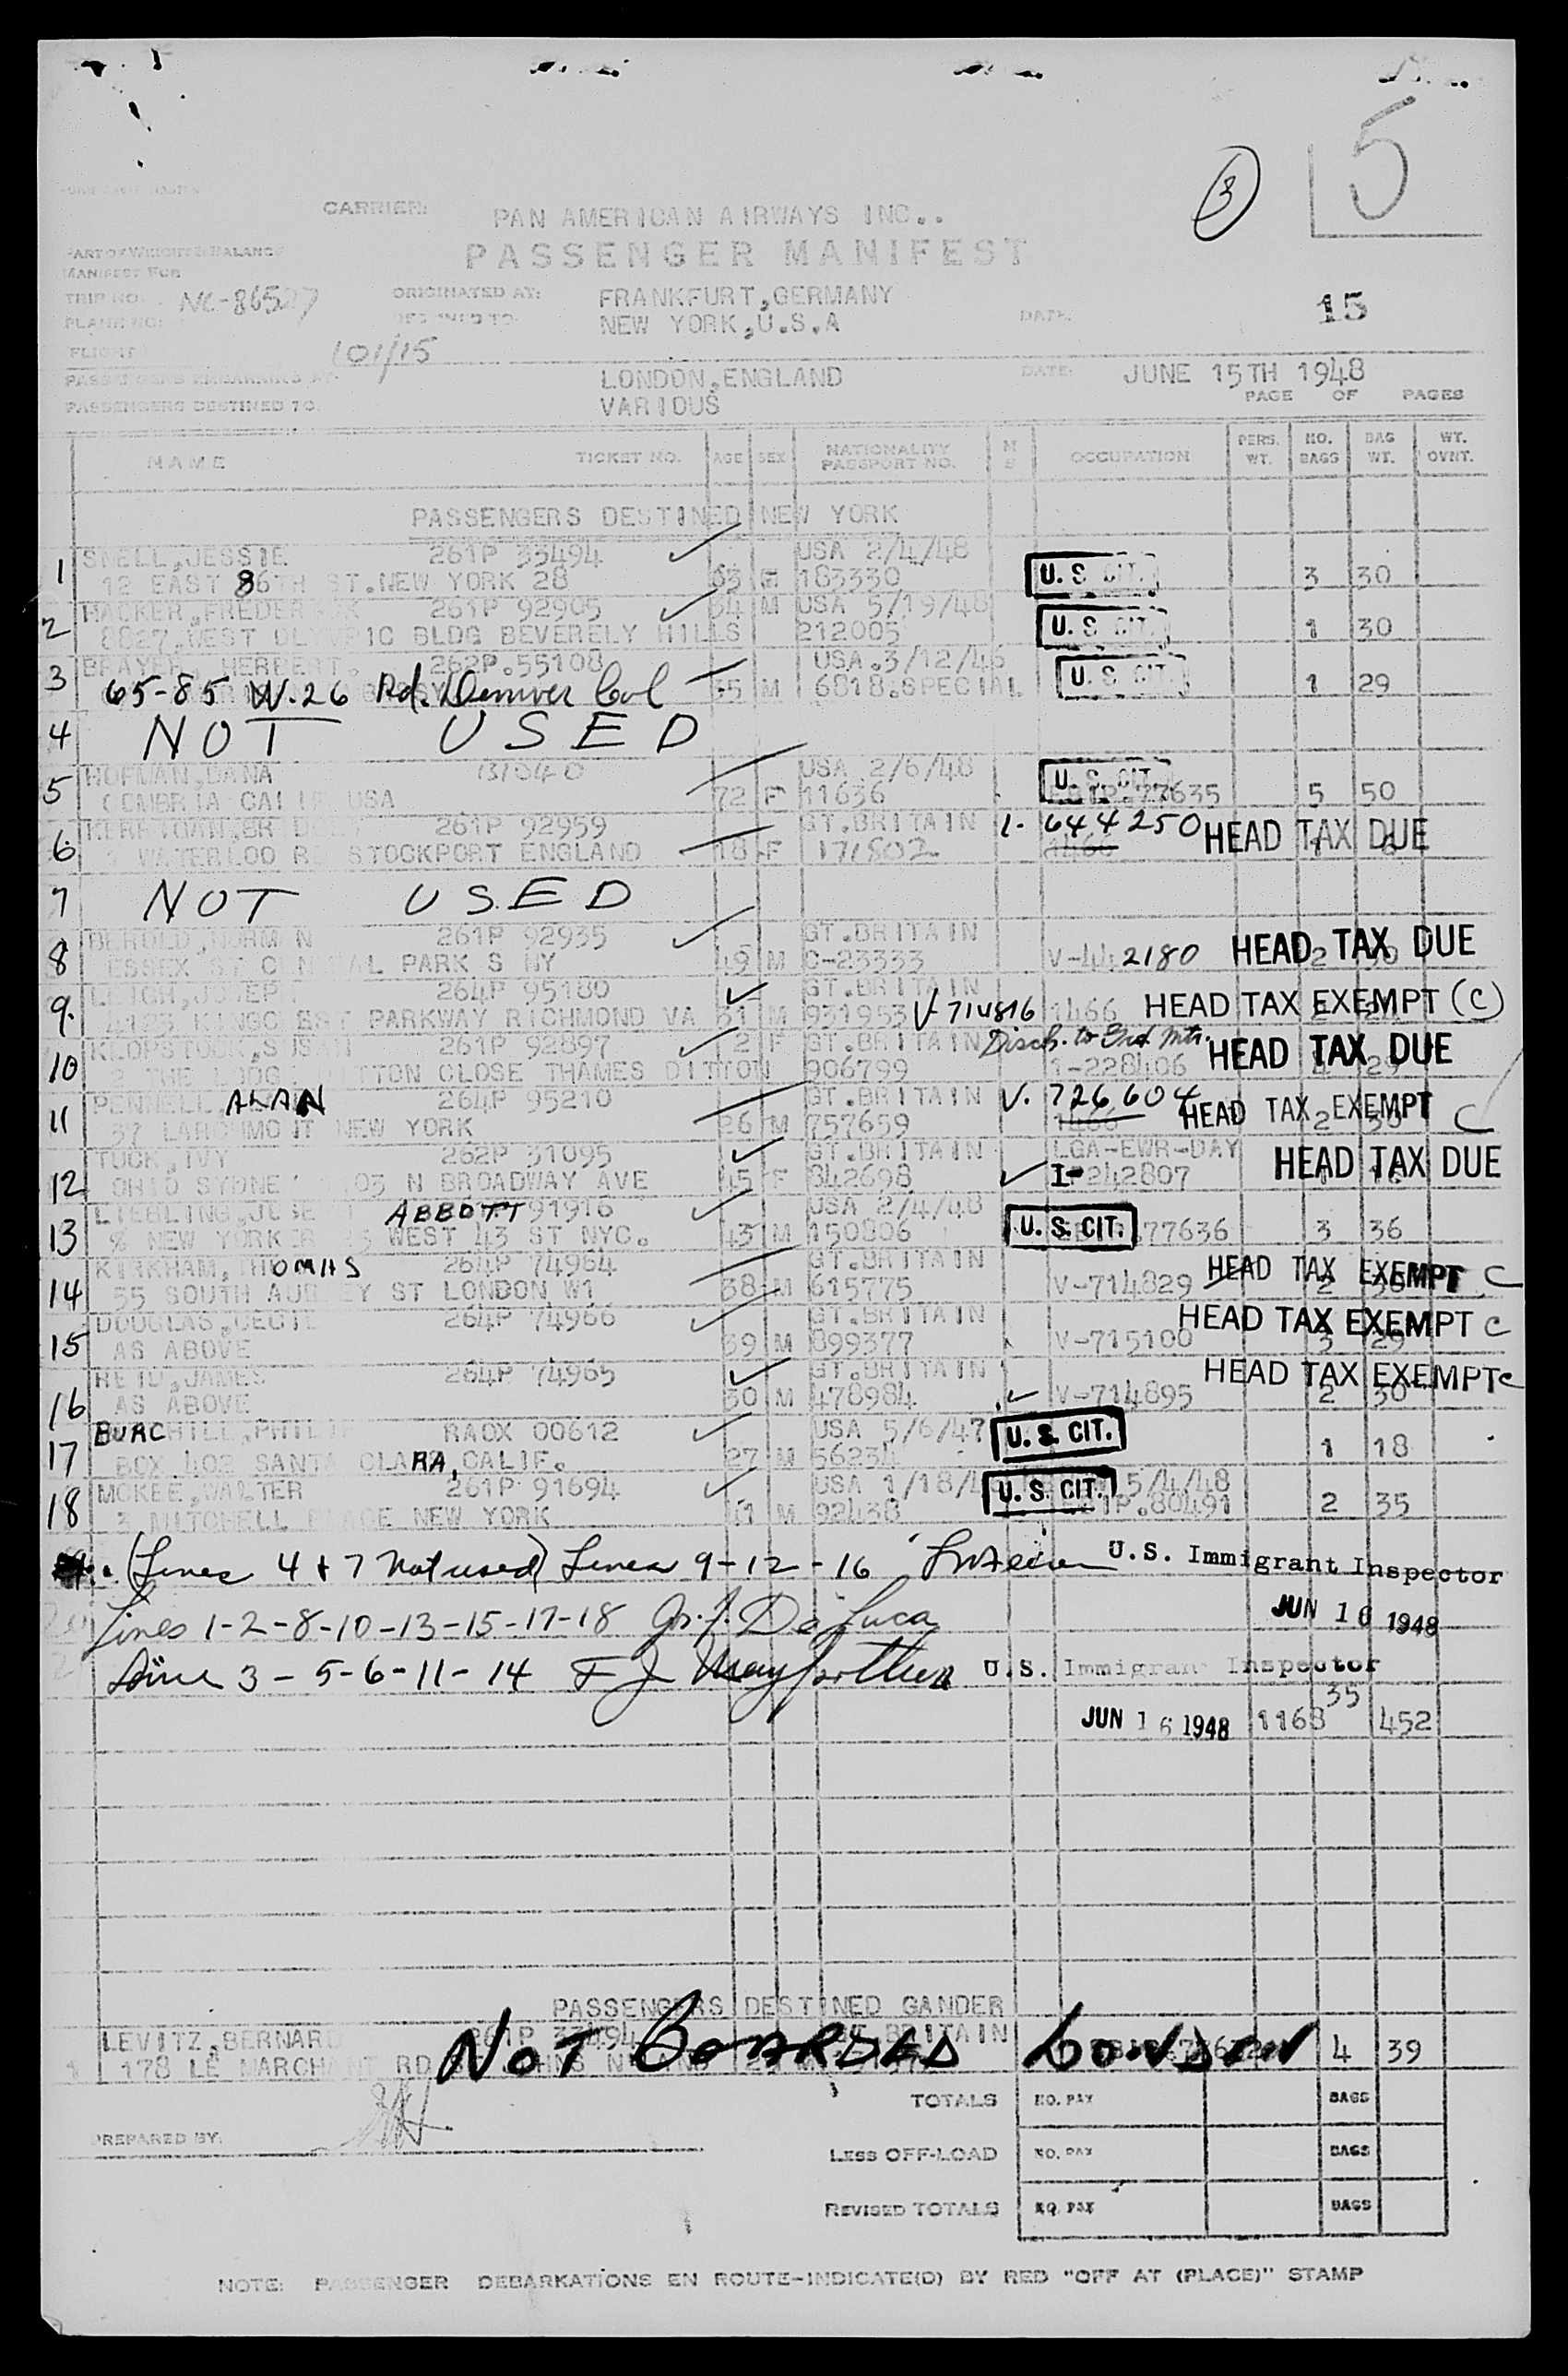 3
5
CARRIER:
PAN AMERICAN AIRWAYS INC..
PASSENGER MANIFEST
PART OF WEIGHT & BALANCE
MANIFEST FOR
TRIP NO. NC-86527 ORIGINATED AT: FRANKFURT,GERMANY
PLANE NO: DESTINED TO: NEW YORK,U.S.A DATE: 15
FLIGHT 101/15
PASSENGERS EMBARKING AT: LONDON,ENGLAND DATE: JUNE 15TH 1948
PASSENGERS DESTINED TO: VARIOUS PAGE OF PAGES
NAME TICKET NO. AGE SEX NATIONALITY PASSPORT NO. M S OCCUPATION PERS. WT. NO. BAGS BAG WT. WT. OVNT.
PASSENGERS DESTINED NEW YORK
1 SNELL,JESSIE 261P 33494 USA 2/4/48
12 EAST 86TH ST.NEW YORK 28 63 F 183330 U. S. CIT. 3 30
2 HACKER,FREDERICK 261P 92905 34 M USA 5/19/48
8827.WEST OLYMPIC BLDG BEVERELY HILLS 212005 U. S. CIT. 1 30
3 BRAYER, HERBERT. 262P.55108 USA.3/12/46
65-85 W.26 Rd. Denver Col 35 M 6818.SPECIAL U. S. CIT. 1 29
4 NOT USED
5 HOFMAN,DANA 131040 USA 2/6/48
CEMBRIA CALIF USA 72 F 11636 U. S. CIT. 77635 5 50
6 KERRIGAN,BRIDGET 261P 92959 GT.BRITAIN 1- 644250 HEAD TAX DUE
WATERLOO RD STOCKPORT ENGLAND 18 F 171802 1466
7 NOT USED
8 BEROLD,NORMAN 261P 92935 GT.BRITAIN
ESSEX ST CENTRAL PARK S NY 49 M C-23333 V-442180 HEAD TAX DUE
9. LEIGH,JOSEPH 264P 95180 GT.BRITAIN
KINGC EST PARKWAY RICHMOND VA 31 M 931953 V-714816 1466 HEAD TAX EXEMPT (C)
10 KLOPSTOCK,SUSAN 261P 92897 2 F GT.BRITAIN Disch. to End Mtr. HEAD TAX DUE
DITTON CLOSE THAMES DITTON 906799 1-228406
11 PENNELL, ALAN 264P 95210 GT.BRITAIN V. 726604
37 LARCHMONT NEW YORK 26 M 757659 1466 HEAD TAX EXEMPT C
12 TUCK,IVY 262P 31095 GT.BRITAIN LGA-EWR-DAY
OHIO SYDNE N BROADWAY AVE 45 F 342698 I-242807 HEAD TAX DUE
13 LIEBLING,JOSEPH ABBOTT 91916 USA 2/4/48
% NEW YORKER WEST 43 ST NYC. 43 M 150806 U. S. CIT. 77636 3 36
14 KIRKHAM,THOMAS 264P 74964 GT.BRITAIN
55 SOUTH AUDLEY ST LONDON W1 38 M 615775 V-714829 HEAD TAX EXEMPT C
15 DOUGLAS,CECIL 264P 74966 GT.BRITAIN
AS ABOVE 39 M 899377 V-715100 HEAD TAX EXEMPT C
16 REID,JAMES 264P 74965 GT.BRITAIN
AS ABOVE 30 M 478984 V-714895 HEAD TAX EXEMPT C
17 BURCHILL,PHILIP RAOX 00612 USA 5/6/47
BOX 402 SANTA CLARA,CALIF. 27 M 56234 U. S. CIT. 1 18
18 MCKEE,WALTER 261P 91694 USA 1/18/ 5/4/48
3 MITCHELL PLACE NEW YORK 41 M 92438 U. S. CIT. 80491 2 35
(Lines 4 + 7 Not used) Lines 9-12-16 U.S. Immigrant Inspector
Lines 1-2-8-10-13-15-17-18 De Luca JUN 16 1948
Line 3-5-6-11-14 U.S. Immigrant Inspector
JUN 16 1948 1168 35 452
PASSENGERS DESTINED GANDER
LEVITZ,BERNARD 261P 33494 BRITAIN
1 178 LE MARCHANT RD NOT BOARDED LONDON 4 39
TOTALS NO. PAX BAGS
PREPARED BY:
LESS OFF-LOAD NO. PAX BAGS
REVISED TOTALS NO. PAX BAGS
NOTE: PASSENGER DEBARKATIONS EN ROUTE-INDICATE(D) BY RED "OFF AT (PLACE)" STAMP